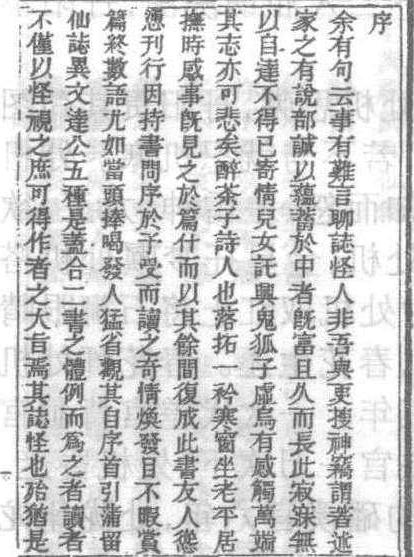 序
余有句云事有難言聊誌怪人非吾與更搜神竊謂著述
家之有說部誠以蘊蓄於中者既富且久而長此寂寐無
以自達不得已寄情兒女託興鬼狐子虛烏有感觸萬端
其志亦可悲矣醉茶子詩人也落拓一衿寒窗坐老平居
撫時感事既見之於篇什而以其餘間復成此書友人慫
慂刊行因持書問序於予受而讀之奇情煥發目不暇賞
篇終數語尤如當頭捧喝發人猛省觀其自序首引蒲留
仙誌異文達公五種是蓋合二書之體例而為之者讀者
不僅以怪視之庶可得作者之大旨焉其誌怪也殆猶是